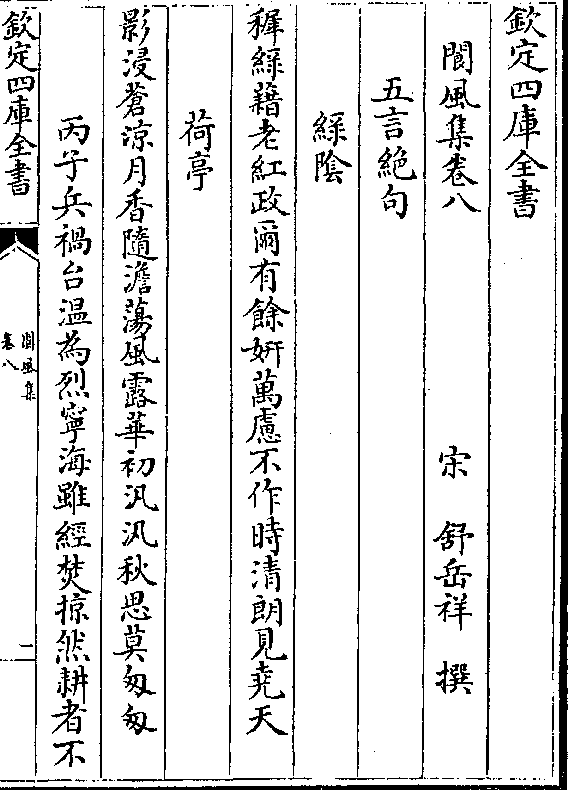 欽定四庫全書
閬風集卷八
宋 舒岳祥 撰
五言絶句
緑陰
穉緑藉老紅政爾有餘妍萬慮不作時清朗見堯天
荷亭
影浸蒼凉月香隨澹蕩風露華初汎汎秋思莫匆匆
丙子兵禍台温為烈寧海雖經焚掠然耕者不
欽定四庫全書
閬風集
卷八
二